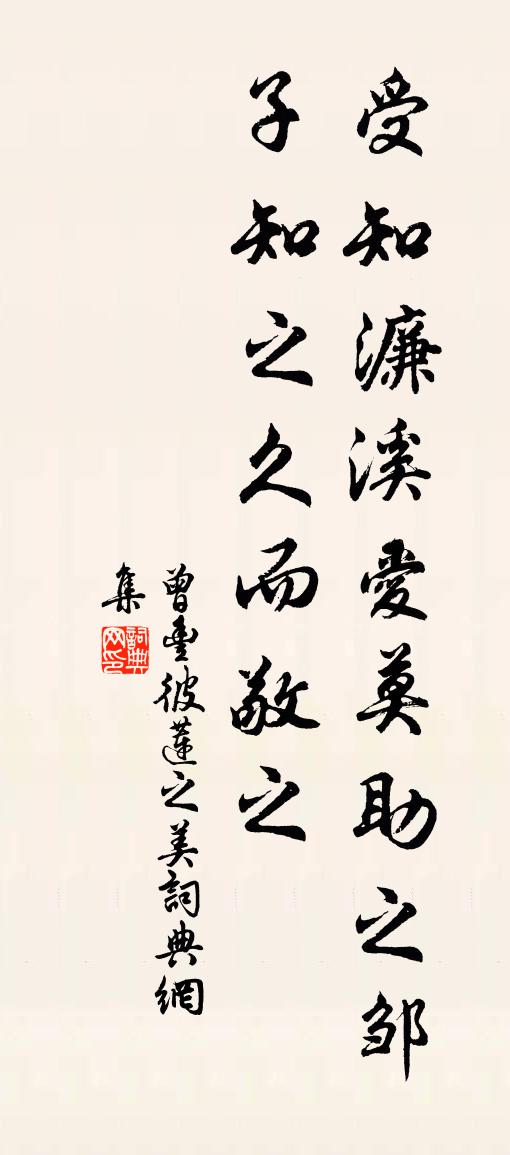 受知濂溪愛莫助之邹
子知之久而敬之
曾豊彼蓮之美詞典網
集
詞典
网印